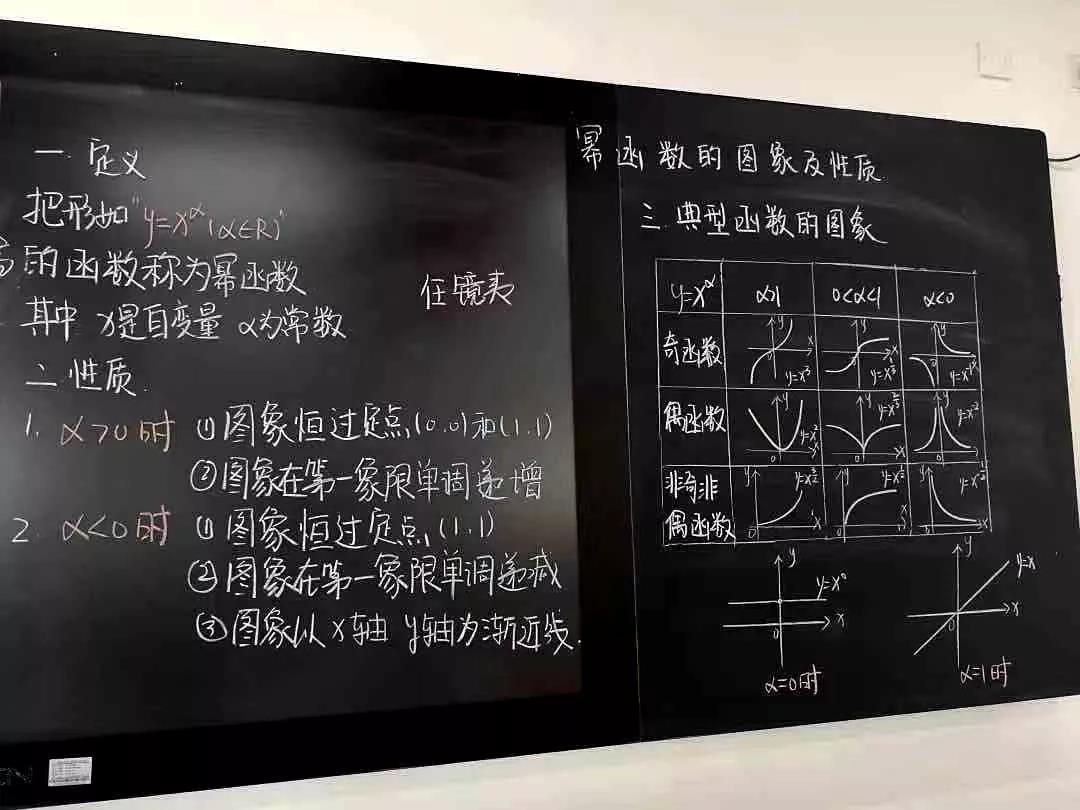 幂函数的图象及性质
一.定义
把形如"y=x^α(α∈R)"
的函数称为幂函数
其中 x是自变量 α为常数
二.性质.
1. α>0时 ①图象恒过定点(0,0)和(1,1)
②图象在第一象限单调递增
2. α<0时 ①图象恒过定点(1,1)
②图象在第一象限单调递减
③图象以x轴 y轴为渐近线.
任镜
三.典型函数的图象
y=x^α α>1 0<α<1 α<0
奇函数 y x 0 y=x^3 y x 0 y=x^{1/3} y x 0 y=x^{-1}
偶函数 y x 0 y=x^2 y x 0 y=x^{2/3} y x 0 y=x^{-2}
非奇非 y=x^{3/2} y=x^{1/2}
偶函数 y x 0 y x 0 y x 0
y y=x^0 x 0
α=0时
y y=x x 0
α=1时